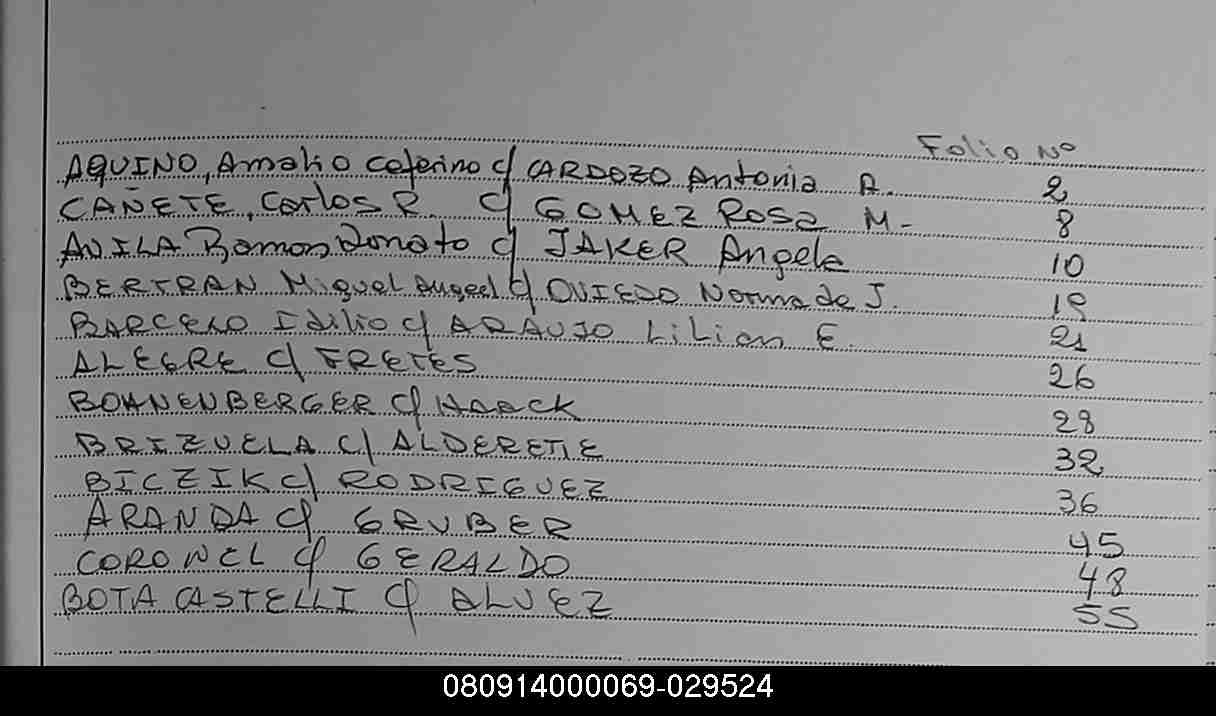 Folio Nº
AQUINO, Amalio Ceferino c/ CARDOZO Antonia A. 2
CAÑETE, Carlos R. c/ GOMEZ Rosa M- 8
AVILA Ramon Donato c/ JAKER Angela 10
BERTRAN Miguel Angel c/ OVIEDO Norma de J. 19
BARCELO Idilio c/ ARAUJO Lilian E. 21
ALEGRE c/ FRETES 26
BOHNENBERGER c/ HAACK 28
BRIZUELA c/ ALDERETE 32
BICZIK c/ RODRIGUEZ 36
ARANDA c/ GRUBER 45
CORONEL c/ GERALDO 48
BOTA CASTELLI c/ ALVEZ 55
080914000069-029524